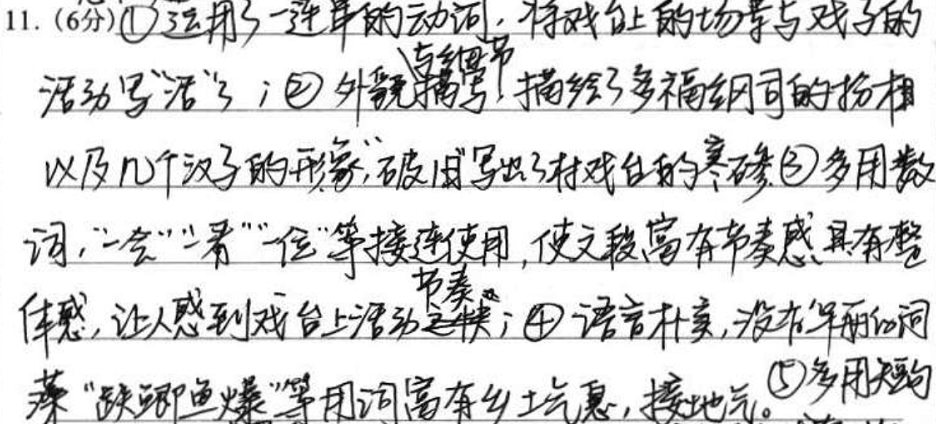 11. (6分)①运用了一连串的动词，将戏台上的场景与戏子的
活动写“活”了；②外貌与细节描写，描绘了多福纲司的扮相
以及几个汉子的形象，“破旧”写出了村戏台的寒碜③多用数
词，“一会”“一看”“一位”等接连使用，使文段富有节奏感、具有整
体感，让人感到戏台上活动节奏快；④语言朴实，没有华丽的词
藻“鲫鱼爆”等用词富有乡土气息，接地气。⑤多用短句